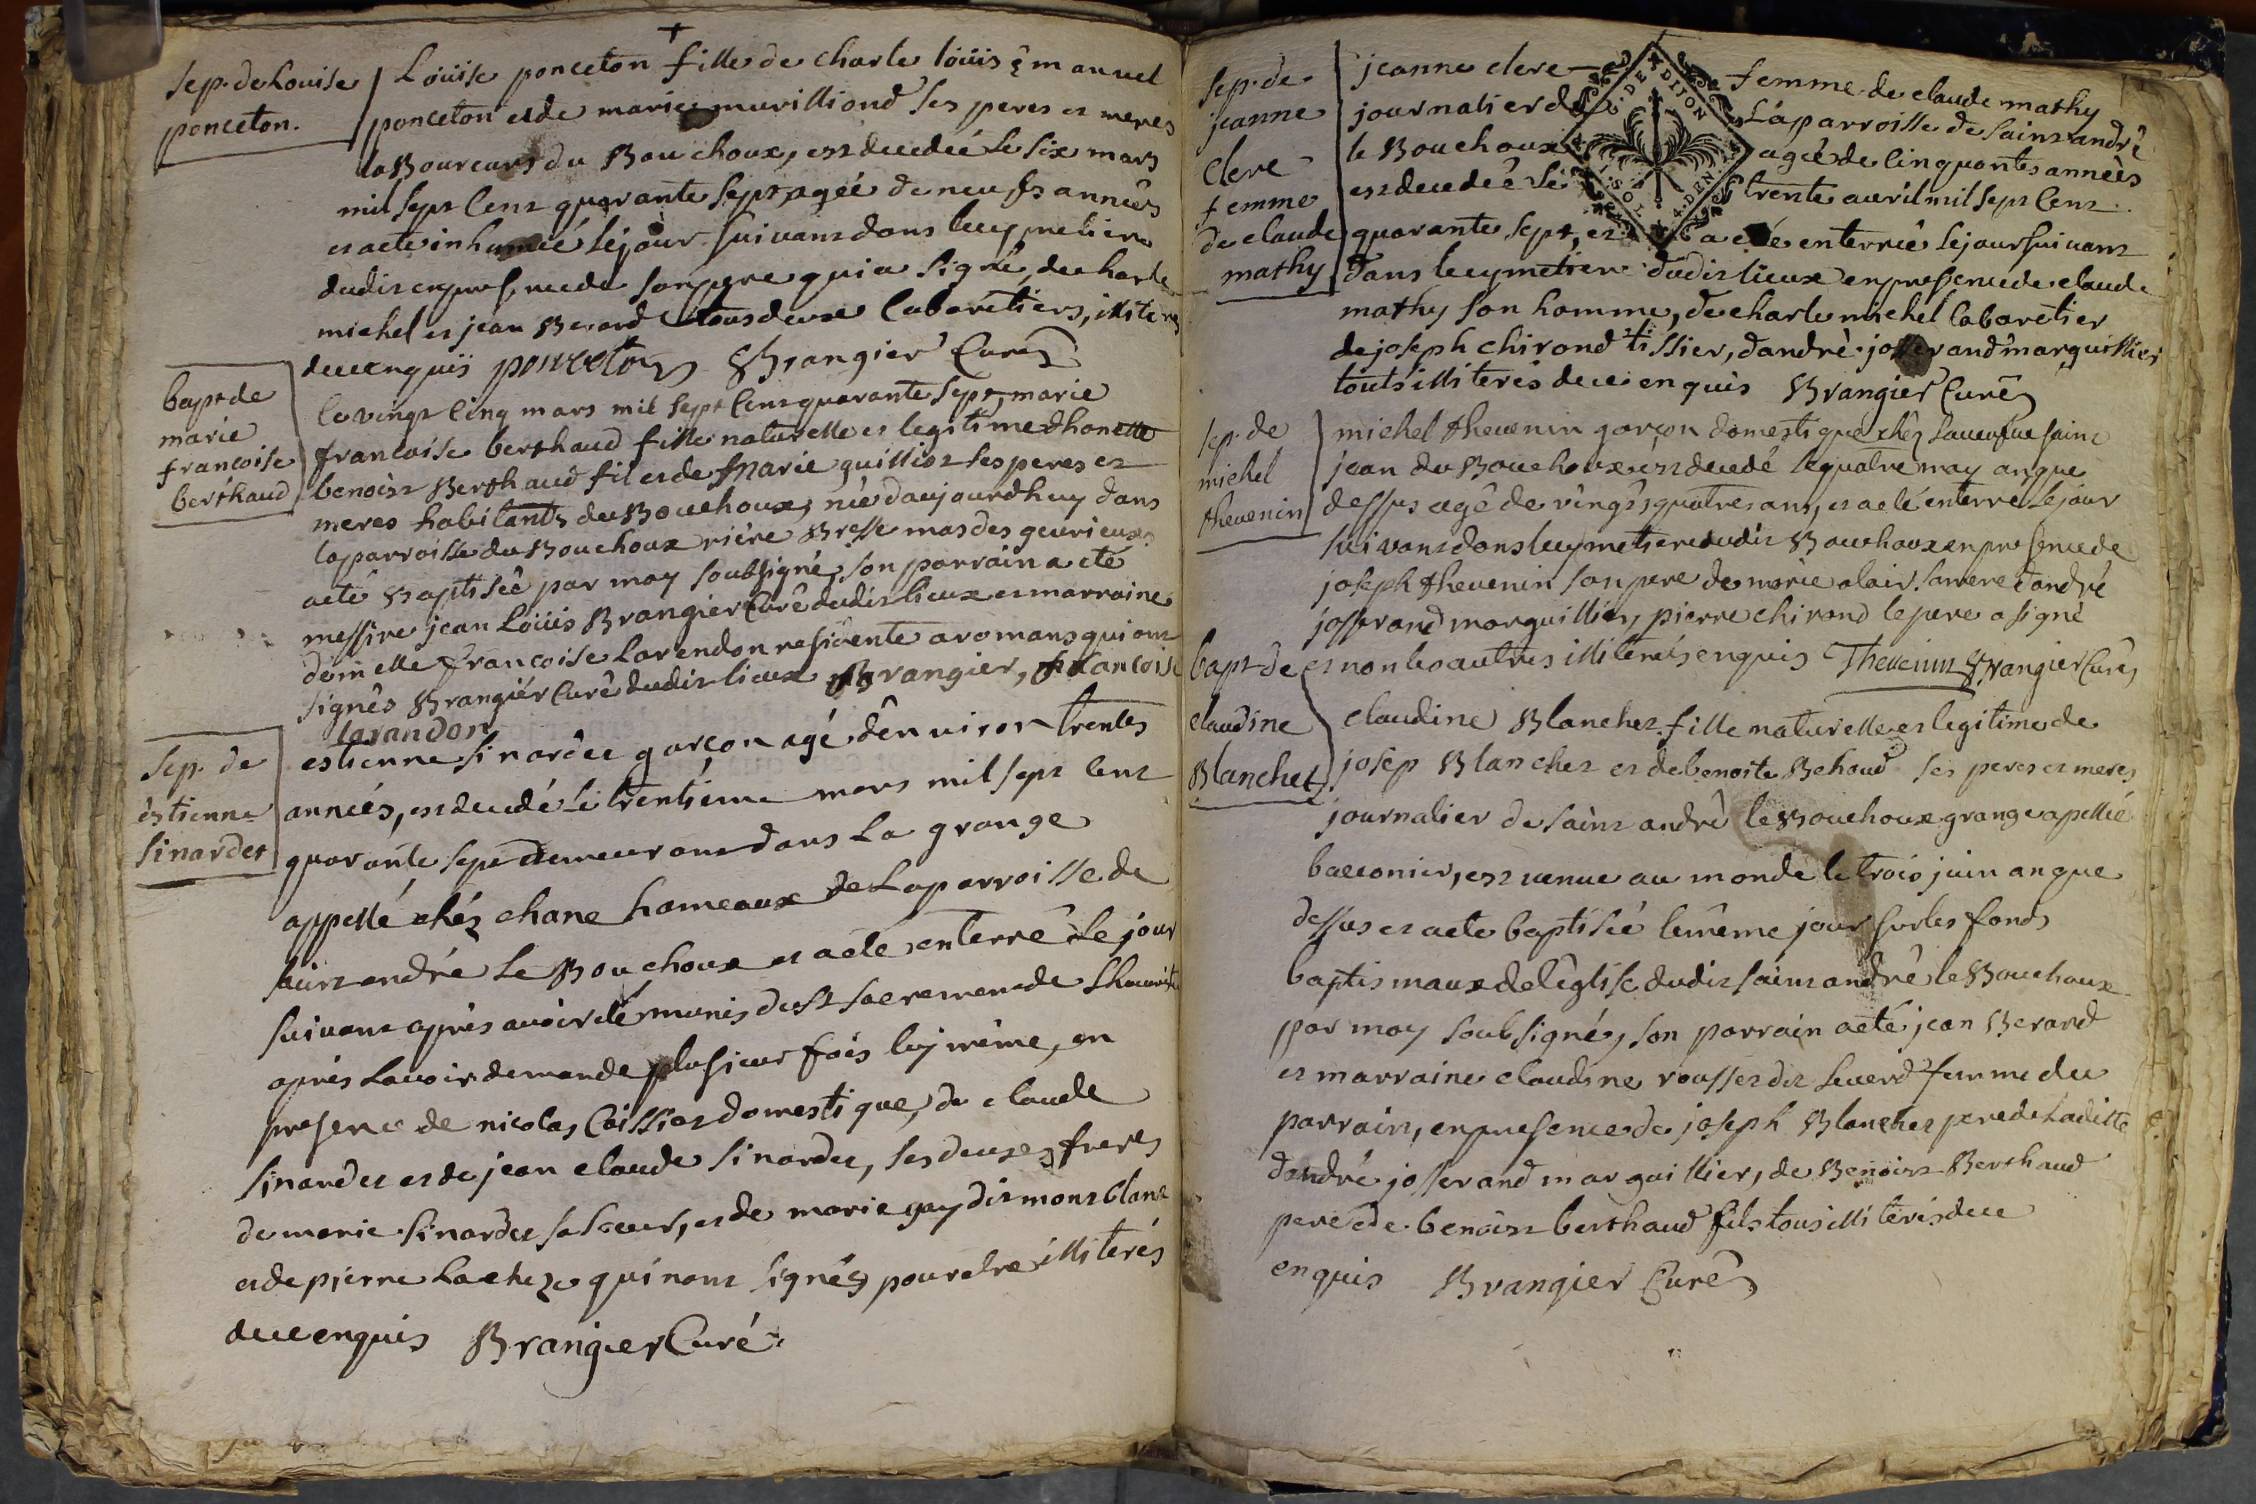 sep. de Louise
ponceton.
Loüise ponceton fille de charle loüis êmanuel
ponceton et de marie murilliond ses peres et meres
laboureurs du Bouchoux, est decedeé le six mars
mil sept cent quarante sept, ageé de neufs anneês
et a ete inhumeé le jour suivant dans le cymetiere
dudit en presence de son pere qui a signé, de charle
michel et jean Berard tous deux Cabaretiers, illiteres
de ce enquis ponceton Brangier Curé
bapt de
marie
francoise
berthaud
le vingt cinq mars mil sept cent quarante sept, marie
francoise berthaud fille naturelle et legitime dhonette
benoist Berthaud fil et de Marie guilliot ses peres et
meres habitants du Bouchoux, neé daujourdhuy dans
la parroisse du Bouchoux riére Bresse mas des geurieux
a eté Baptiseê par moy soubsigné, son parrain a eté
messire jean Loüis Brangier Curê dudit lieux et marraine
doimelle francoise Larendon residente a romans qui ont
signês Brangiér Curê dudit lieux Brangier, francoise
larandon
sep. de
estienne
sinardet
estienne sinardet garçon agé d'environ trentes
anneés, est decedé le trentieme mars mil sept cent
quarante sept demeurant dans la grange
appellé chéz chane hameaux de la parroisse de
saint andré le Bouchoux et a eté enterrê le jour
suivant aprés avoir eté munis du st sacrement de Lheucaristie
aprés Lavoir demande plusieur fois luy même, en
presence de nicolas Caissiet domestique, de claude
sinardet et de jean claude sinardet, ses deuxes freres
de marie sinardet sa soeur, et de marie gay dit montblanc
et de pierre Lacheze qui n'ont signés pour etre illiterés
de ce enquis Brangier Curé
sep. de
jeanne
clere
femme
de claude
mathy
jeanne clere femme de claude mathy
journalier de La parroisse de saint andrê
le Bouchoux ageé de cinquantes anneés
est decedeê le trente avril mil sept cent
G. DE DIJON
1. SOL 4. DEN.
quarante sept, et a eté enterreê le jour suivant
dans le cymetiere dudit lieux en presence de claude
mathy son homme, de charle michel Cabaretier
de joseph chirond tissier, d'andrè josserand marguillier
touts illiterés de ce enquis Brangier Curê
sep. de
michel
thevenin
michel thevenin garçon domestique chéz la veufve saint
jean du Bouchoux est decedé le quatre may an que
dessus agê de vingts quatres ans, et a eté enterre le jour
suivant dans le cymetiere dudit Bouchoux en presence de
joseph thevenin son pere de marie alair sa mere d'andrê
josserand marguillier, pierre chirond le pere a signé
et non les autres illiterés enquis Thevenin Brangier Curê
bapt de
claudine
Blanchet
claudine Blanchet fille naturelle et legitime de
josep Blanchet et de benoite Behoud ses peres et meres
journalier de saint andrê le Bouchoux grange apelleé
baeconier, est venue au monde le trois juin an que
dessus et a ete baptiseé le même jour sur les fonds
baptismaux de l'êglise dudit saint andrê le Bouchoux
par moy soubsigné, son parrain a eté jean Berard
et marraine claudine rousset dit leverd femme du
parrain, en presence de joseph Blanchet pere de La ditte
d'andré josserand marguillier, de Benoist Berthaud
pere et de benoist berthaud fils tous illiterés de ce
enquis Brangier Curê